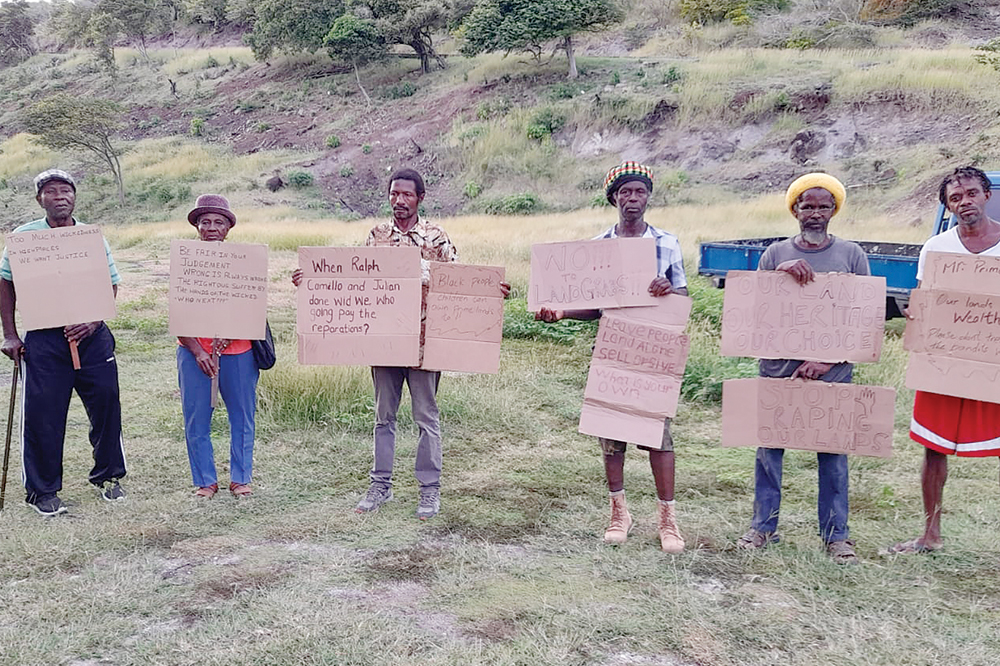 TOO MUCH WICKEDNESS
IN HIGH PLACES
WE WANT JUSTICE
BE FAIR IN YOUR
JUDGEMENT
WRONG IS ALWAYS WRONG
THE RIGHTOUS SUFFER BY
THE HANDS OF THE WICKED
WHO NEXT???
When Ralph
Camello and Julian
done wid We. Who
going pay the
reparations?
Black People
children can
own prime lands
to
NO!!!
TO
LANDGRABS!!!
Leave People
LAND ALONE
SELL OR GIVE
What is your
OWN
OUR LAND
OUR HERITAGE
OUR CHOICE
STOP
RAPING
OUR LANDS
Mr Prime
Our lands
Wealth
Please don't
the bandits